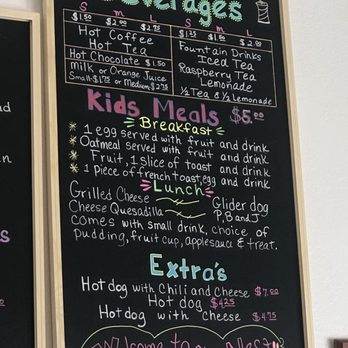 Beverages
S M L
$1.50 $2.00 $2.50
Hot Coffee
Hot Tea
Hot Chocolate $1.50
Milk or Orange Juice
Small-$1.75 or Medium $2.75
S M L
$1.50 $2.00
Fountain Drinks
Iced Tea
Raspberry Tea
Lemonade
½ Tea & ½ Lemonade
Kids Meals $5.00
Breakfast
* 1 egg served with fruit and drink
* Oatmeal served with fruit and drink
* Fruit, 1 slice of toast and drink
* 1 piece of french toast, egg and drink
Lunch
Grilled Cheese
Cheese Quesadilla
Glider dog
P,B and J
comes with small drink, choice of
pudding, fruit cup, applesauce & treat.
Extra's
Hot dog with Chili and Cheese $7.00
Hot dog $4.25
Hot dog with cheese $4.75
Welcome to our